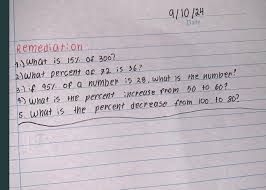 9/10/24
Date
Remediation
1.) What is 15% of 300?
2.) What percent of 72 is 36?
3.) if 95% of a number is 38, what is the number?
4) What is the percent increase from 50 to 60?
5. What is the percent decrease from 100 to 80?